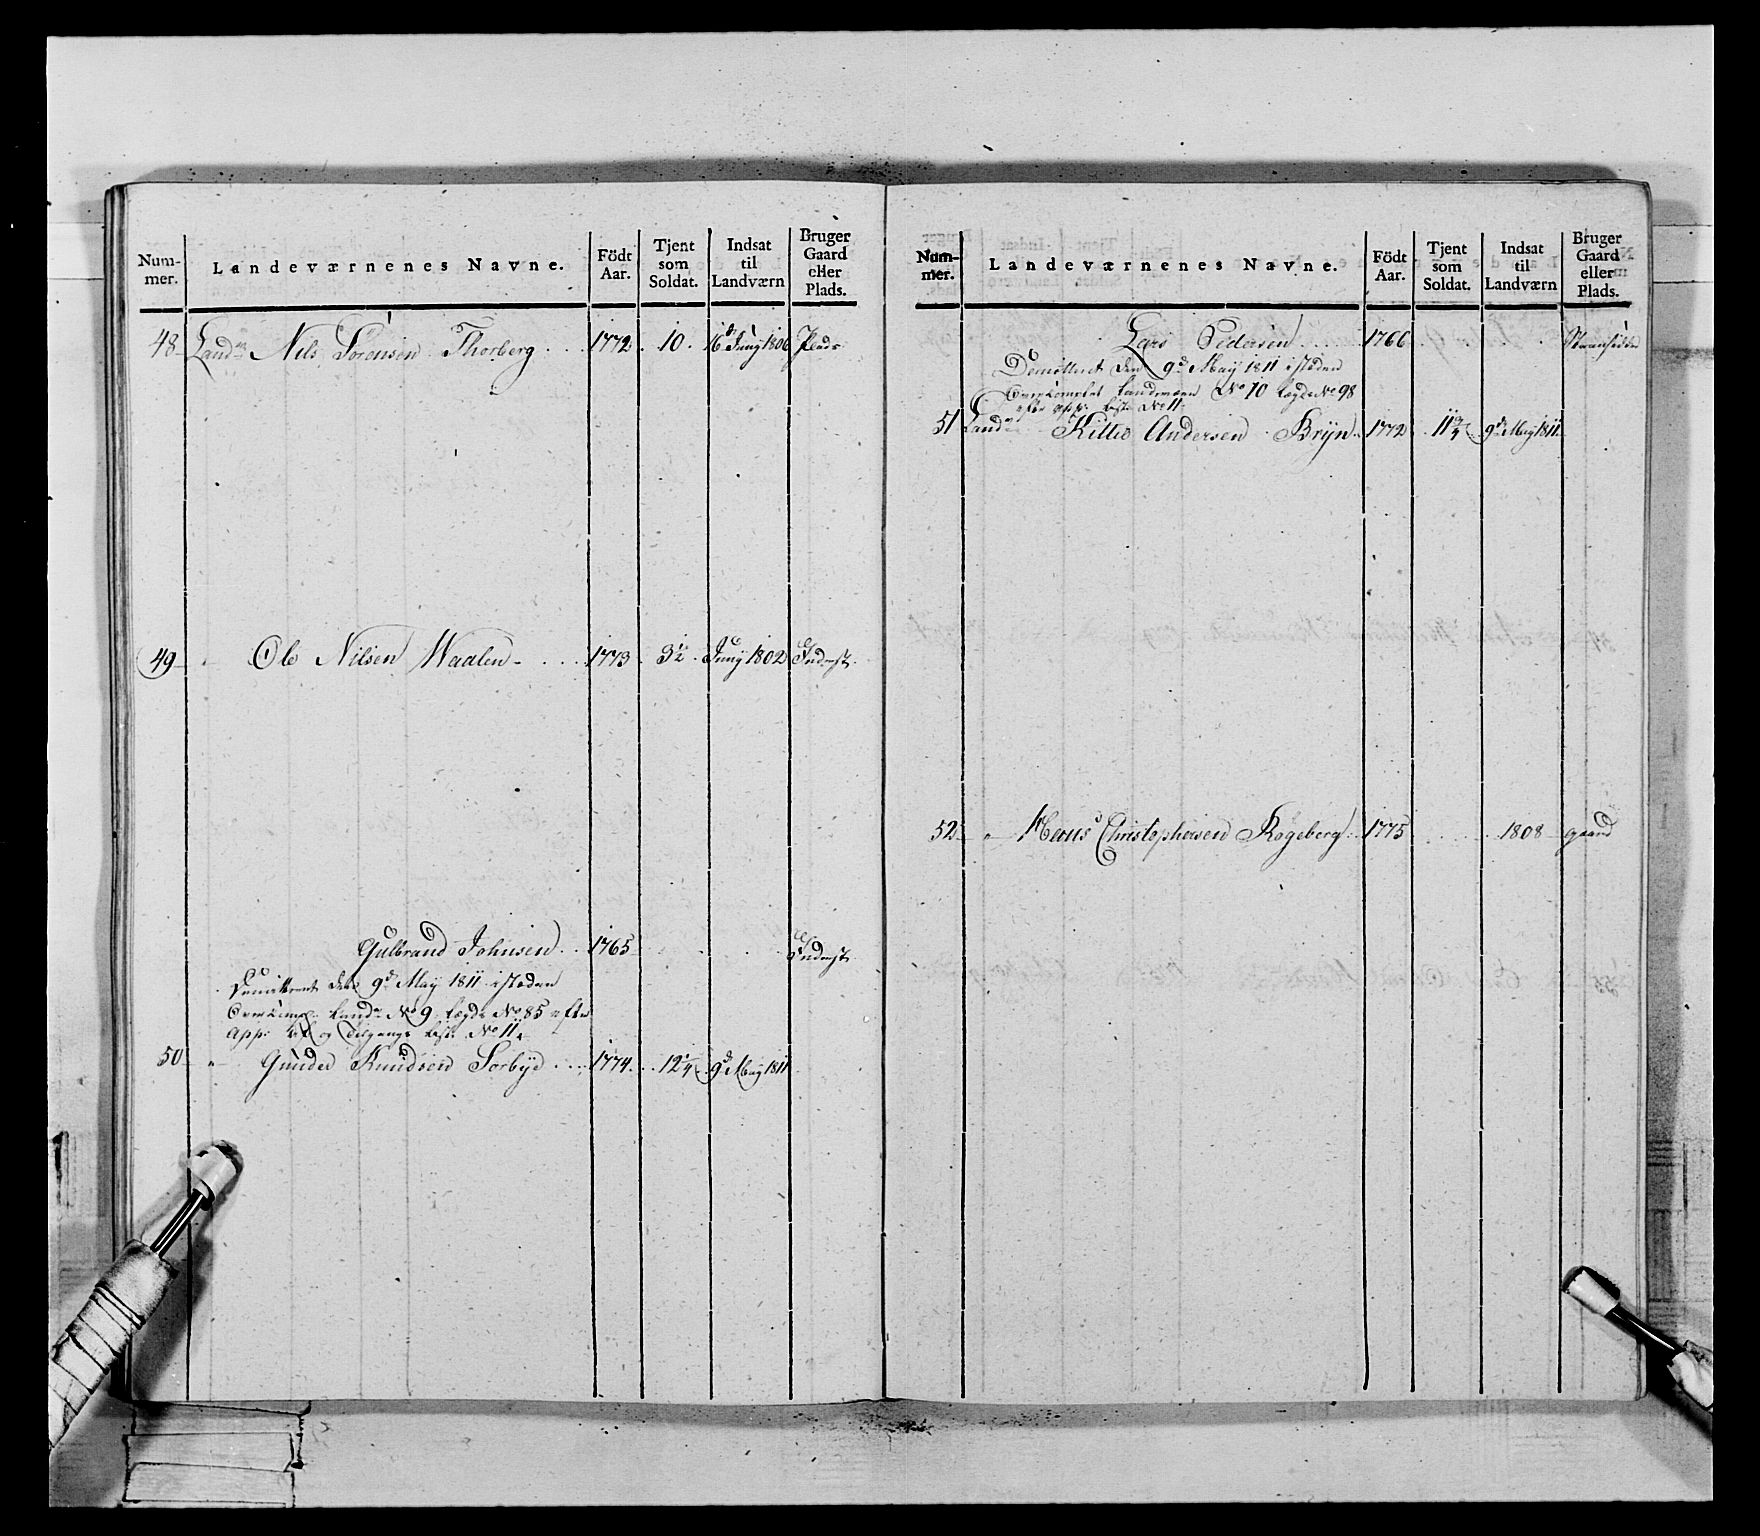 Num-
mer.
Landeværnenes Navne.
Födt
Aar.
Tjent
som
Soldat.
Indsat
til
Landværn
Bruger
Gaard
eller
Plads.
48 Land Nils Sørensen Thorberg 1772 10 16 Juny 1806 Plads
49 " Ole Nilsen Waalen 1773 3½ Juny 1802 Inderst
Gulbrand Johnsen 1765 Inderst
Dimitteret den 9d May 1811 i stæden
Land No 9 Lægd No 85 efter
App: og Tilgangs Liste No 11
50 " Gunder Knudsen Sørbye 1774 12¼ 9d May 1811
Num-
mer.
Landeværnenes Navne.
Födt
Aar.
Tjent
som
Soldat.
Indsat
til
Landværn
Bruger
Gaard
eller
Plads.
Lars Pedersen 1766
Demitteret den 9d May 1811 i stæden
Overcomplet Landværn No 10 Lægd No 98
efter App: Liste No 11
51 Land Kittel Andersen Bryn 1772 11¾ 9d May 1811
52 " Hans Christophersen Røgeberg 1775 1808 gaard